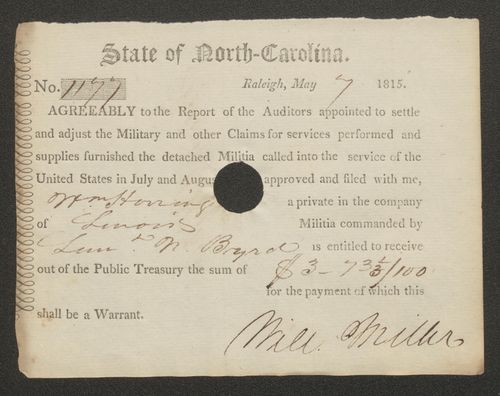 State of North-Carolina.
No. 1177 Raleigh, May 7 1815.
AGREEABLY to the Report of the Auditors appointed to settle
and adjust the Military and other Claims for services performed and
supplies furnished the detached Militia called into the service of the
United States in July and Augus approved and filed with me,
Wm Herring a private in the company
of Lenoir Militia commanded by
N. Byrd is entitled to receive
out of the Public Treasury the sum of $3-73⅓/100
for the payment of which this
shall be a Warrant.
Will. Miller